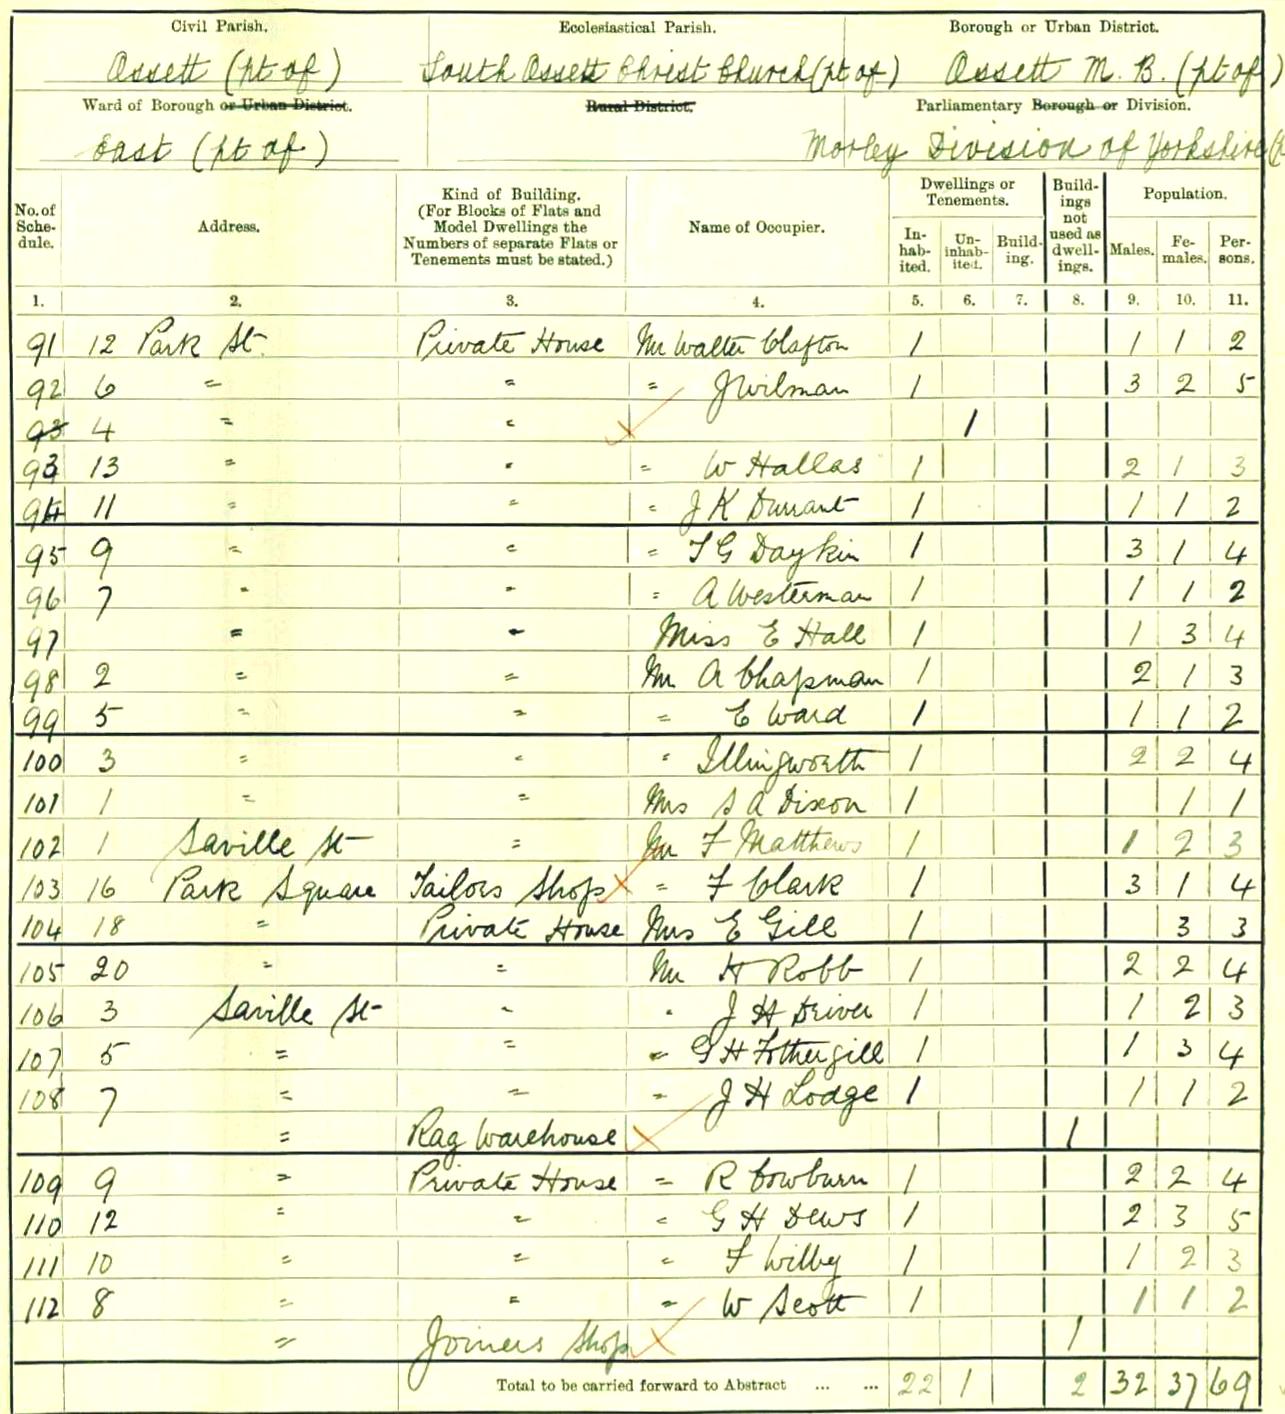 Civil Parish. Ecclesiastical Parish. Borough or Urban District.
Ossett (pt of) South Ossett Christ Church (pt of) Ossett M. B. (pt of)
Ward of Borough or Urban District. Rural District. Parliamentary Borough or Division.
East (pt of) Morley Division of Yorkshire (p
No. of Schedule. Address. Kind of Building. (For Blocks of Flats and Model Dwellings the Numbers of separate Flats or Tenements must be stated.) Name of Occupier. Dwellings or Tenements. Inhabited. Uninhabited. Building. Buildings not used as dwellings. Population. Males. Females. Persons.
1. 2. 3. 4. 5. 6. 7. 8. 9. 10. 11.
91 12 Park St Private House Mr Walter Clafton 1 1 1 2
92 6 " " " J Wilman 1 3 2 5
93 4 " " 1
93 13 " " " W Hallas 1 2 1 3
94 11 " " " J K Durrant 1 1 1 2
95 9 " " " T G Daykin 1 3 1 4
96 7 " " " A Westerman 1 1 1 2
97 " " Miss E Hall 1 1 3 4
98 2 " " Mr A Chapman 1 2 1 3
99 5 " " " E Ward 1 1 1 2
100 3 " " " Illingworth 1 2 2 4
101 1 " " Mrs S A Dixon 1 1 1
102 1 Saville St " Mr F Matthews 1 1 2 3
103 16 Park Square Tailors Shop " F Clark 1 3 1 4
104 18 " Private House Mrs E Gill 1 3 3
105 20 " " Mr H Robb 1 2 2 4
106 3 Saville St " " J H Driver 1 1 2 3
107 5 " " " G H Fothergill 1 1 3 4
108 7 " " " J H Lodge 1 1 1 2
" Rag Warehouse 1
109 9 " Private House " R Cowburn 1 2 2 4
110 12 " " " G H Dews 1 2 3 5
111 10 " " " F Wilby 1 1 2 3
112 8 " " " W Scott 1 1 1 2
" Joiners Shop 1
Total to be carried forward to Abstract ... ... 22 1 2 32 37 69